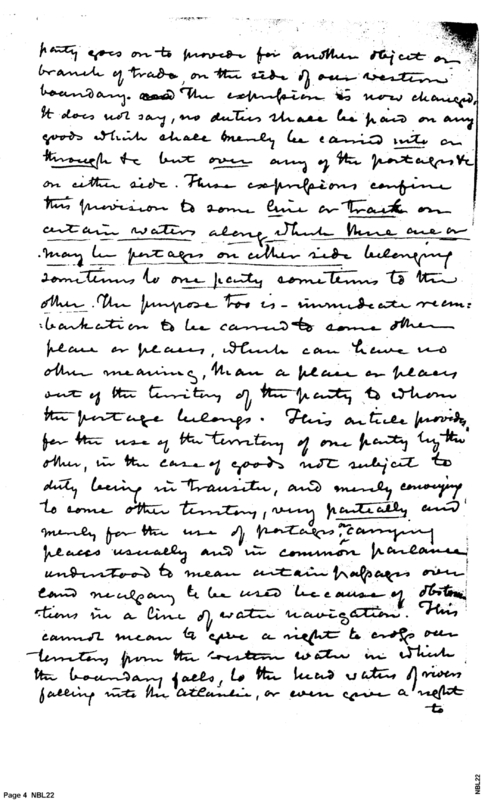 party goes on to provide for another object or
branch of trade, on the side of our western
boundary. and The expression is now changed,
It does not say, no duties shall be paid on any
goods which shall merely be carried into or
through &c but over any of the portages &c
on either side. These expressions confine
this provision to some line or track on
certain waters along which there are or
may be portages on either side belonging
sometimes to one party sometimes to the
other. The purpose too is - immediate reem:
:barkation to be carried to some other
place or places, which can have no
other meaning, than a place or places
out of the territory of the party to whom
the portage belongs. This article provides,
for the use of the territory of one party by the
other, in the case of goods not subject to
duty being in transitu, and merely conveying
to some other territory, very partially and
merely for the use of portages, or carrying
places usually and in common parlance
understood to mean certain passages over
land necessary to be used because of obstruc
tions in a line of water navigation. This
cannot mean to give a right to cross our
territory from the western water in which
the boundary falls, to the head waters of rivers
falling into the Atlantic, or even give a right
to
Page 4 NBL22
NBL22